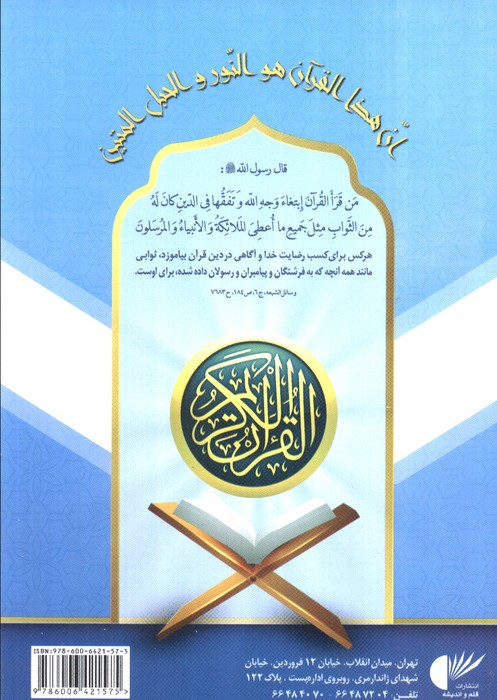 انّ هذا القرآن هو النّور و الحبل المتین
قال رسول الله ﷺ :
مَن قَرَأَ القُرآنَ إبتغاءَ وَجهِ اللّه وَ تَفَقُّهاً فِي الدّینِ کانَ لَهُ
مِنَ الثَّوابِ مِثلَ جَمیعِ ما أُعطِیَ المَلائِکَةُ وَ الأنبیاءُ وَ المُرسَلونَ
هرکس برای کسب رضایت خدا و آگاهی در دین قرآن بیاموزد، ثوابی
مانند همه آنچه که به فرشتگان و پیامبران و رسولان داده شده، برای اوست.
وسائل الشیعه، ج۶، ص۱۸۴، ح۷۶۸۳
القرآن الکریم
ISBN: 978-600-6421-57-5
9 786006 421575
تهران، میدان انقلاب، خیابان ۱۲ فروردین، خیابان
شهدای ژاندارمری، روبروی اداره پست، پلاک ۱۲۲
تلفن: ۶۶۴۸۷۳۰۴ - ۶۶۴۸۴۰۷۰
انتشارات
قلم و اندیشه